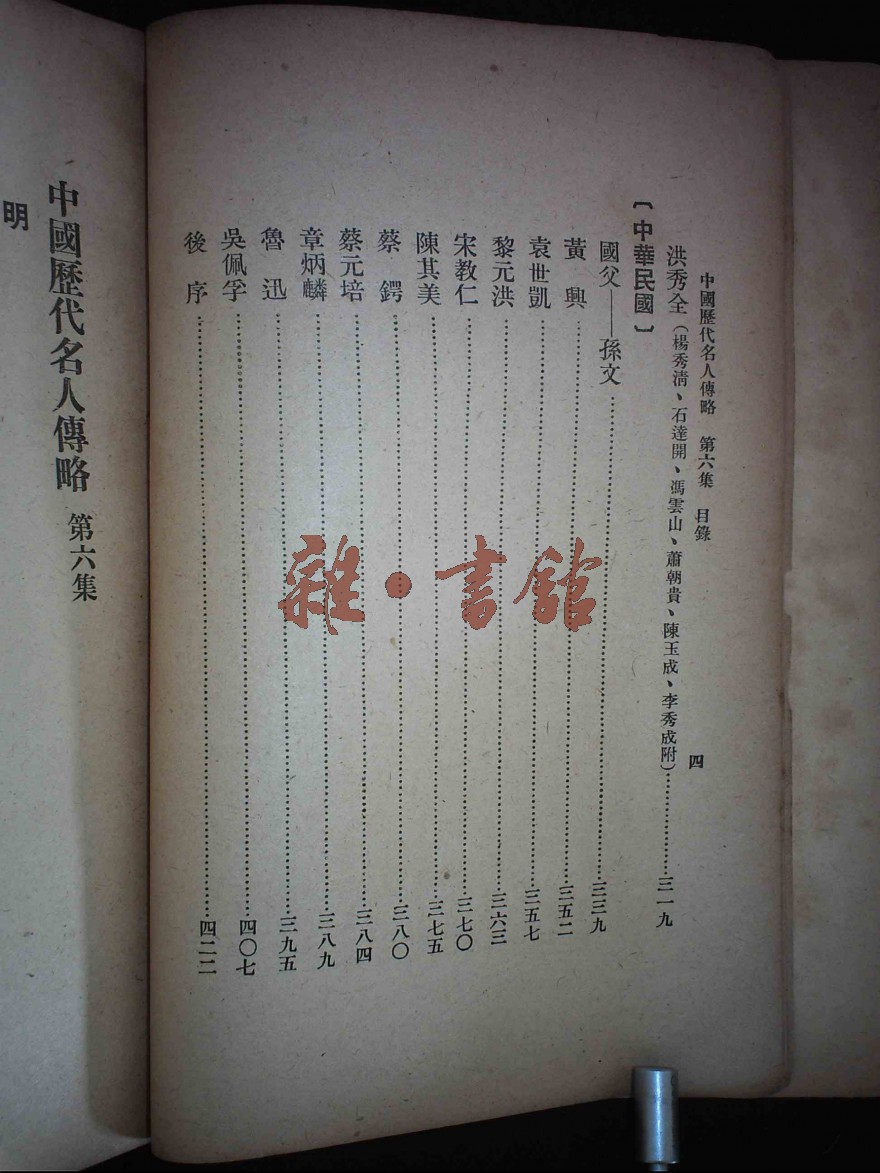 中國歷代名人傳略 第六集 目錄 四
洪秀全（楊秀淸、石達開、馮雲山、蕭朝貴、陳玉成、李秀成附）…………三一九
〔中華民國〕
國父——孫文…………三三九
黃興…………三五二
袁世凱…………三五七
黎元洪…………三六三
宋教仁…………三七〇
陳其美…………三七五
蔡鍔…………三八〇
蔡元培…………三八四
章炳麟…………三八九
魯迅…………三九五
吳佩孚…………四〇七
後序…………四二二
中國歷代名人傳略 第六集
明
雜·書館